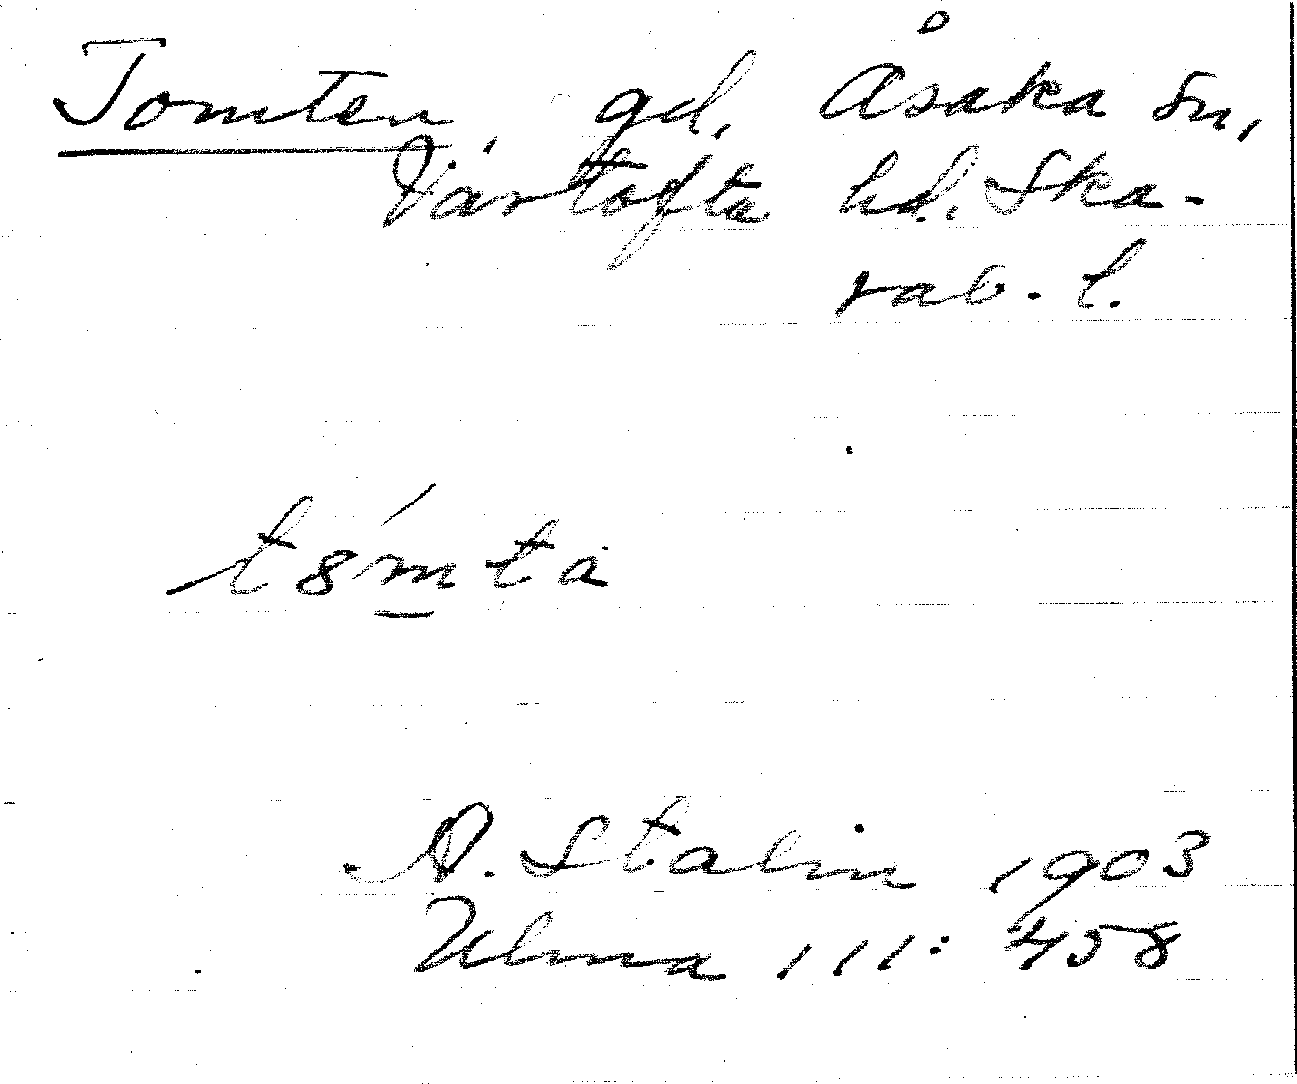 Tomten, gd, Åsaka sn,
Vartofta hd. Ska-
rab. l.
t8́m̲ta
A. Stalin 1903
Ulma 111: 458